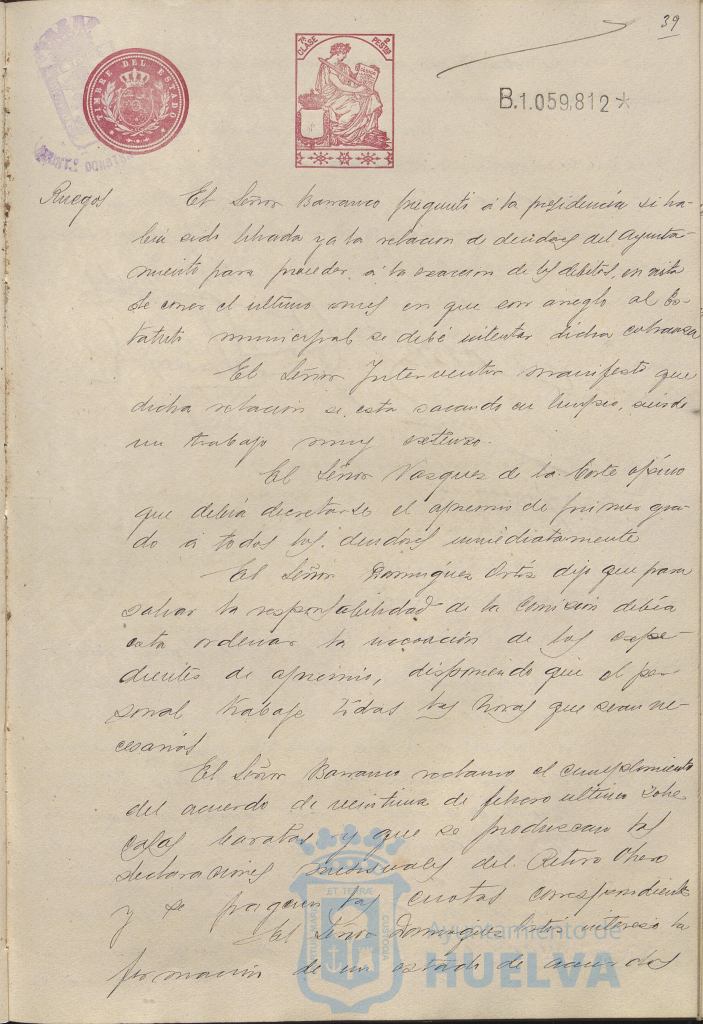 39
TIMBRE DEL ESTADO
7ª CLASE
2 PESTAS
B.1.059.812*
Ruegos
El Señor Barranco preguntó á la presidencia si ha-
bía sido librada ya la relacion de deudores del Ayunta-
miento para proceder á la exaccion de los debitos, en vista
de correr el ultimo mes en que con arreglo al Es-
tatuto municipal se debe intentar dicha cobranza
El Señor Interventor manifestó que
dicha relacion se esta sacando en limpio, siendo
un trabajo muy extenso.
El Señor Vazquez de la Corte opinó
que debia decretarse el apremio de primer gra-
do á todos los deudores inmediatamente
El Señor Dominguez Ortiz dijo que para
salvar la responsabilidad de la Comision debia
esta ordenar la incoación de los expe-
dientes de apremio, disponiendo que el per-
sonal trabaje todas las horas que sean ne-
cesarias
El Señor Barranco reclamó el cumplimiento
del acuerdo de veintiuno de febrero ultimo sobre
casas baratas y que se produzcan las
declaraciones mensuales del Retiro Obrero
y se paguen las cuotas correspondientes
El Señor Dominguez Ortiz interesó la
formación de un estado de acuerdos
ET TERRÆ
CUSTODIA
Ayuntamiento de
HUELVA